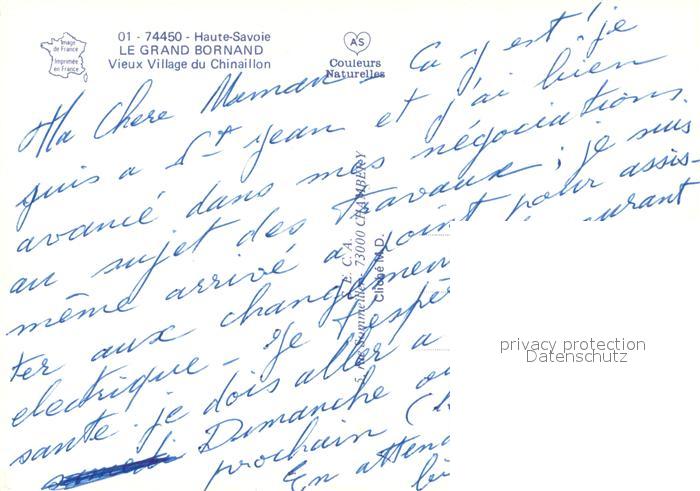 Image
de France
Imprimée
en France
01 - 74450 - Haute-Savoie
LE GRAND BORNAND
Vieux Village du Chinaillon
AS
Couleurs
Naturelles
Ma Chere Maman - Ca y est ! je
suis a St Jean et j'ai bien
avancé dans mes négociations
au sujet des travaux ; je suis
même arrivé a point pour assis-
ter aux changemen courant
electrique - Je t'espèr
santé. je dois aller a
samedi Dumanche ou
prochain (
En atten
bi
E. C. A.
5, rue Sommeiller - 73000 CHAMBERY
Cliché M.D.
privacy protection
Datenschutz